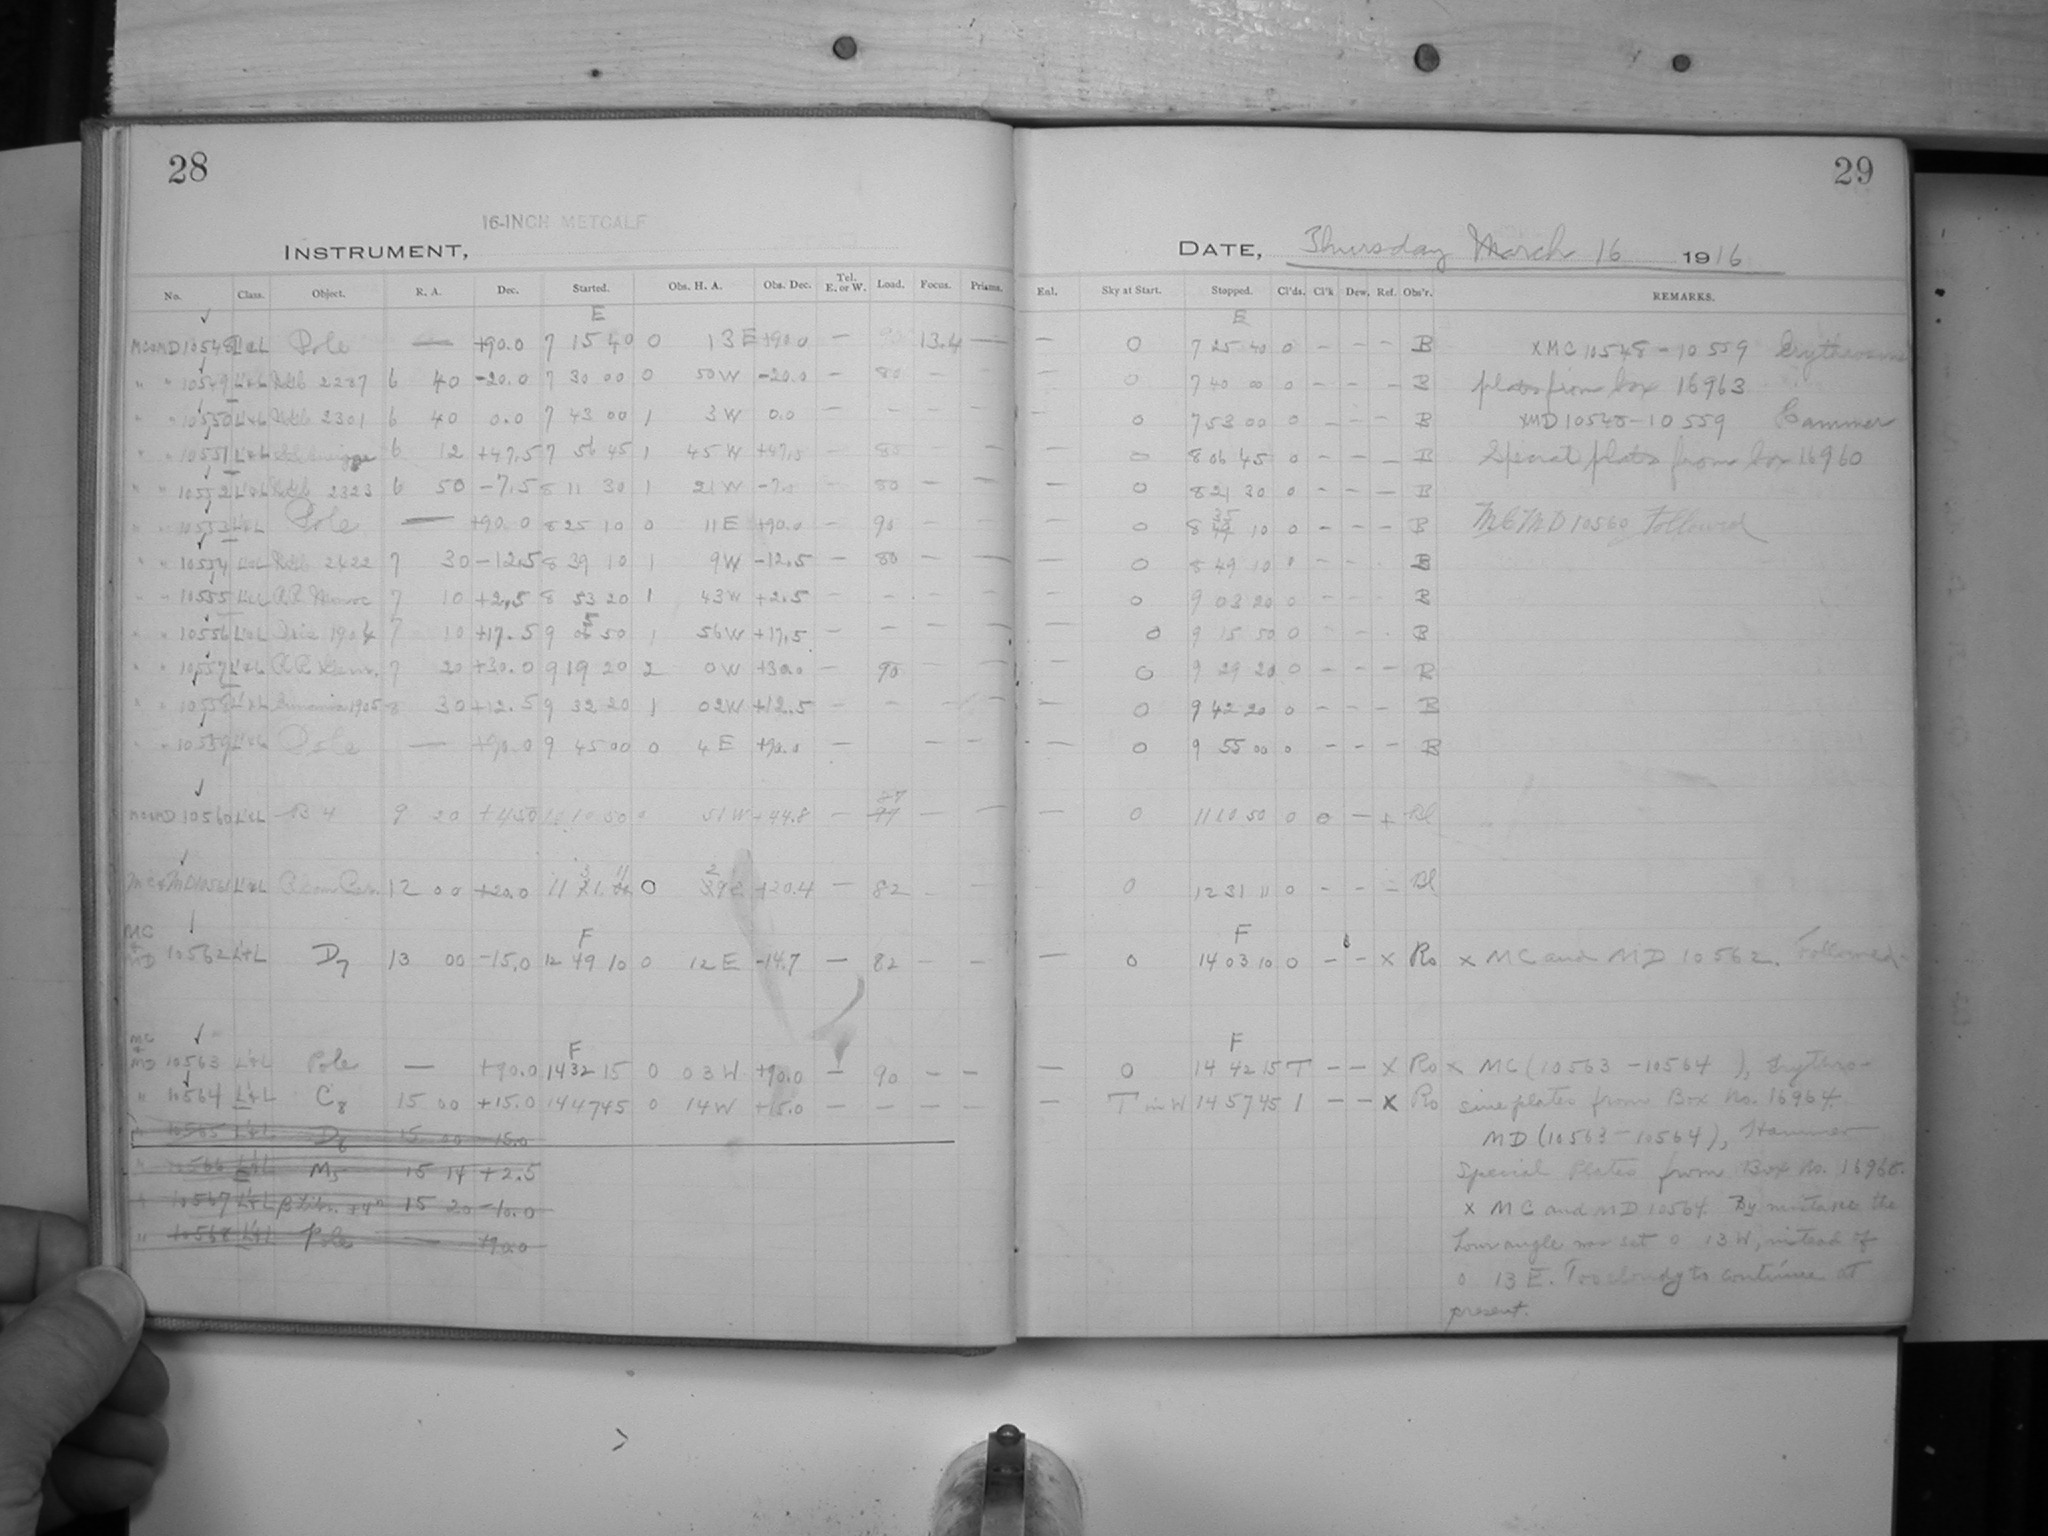 28
16-INCH METCALF
INSTRUMENT,
No. Class. Object. R. A. Dec. Started. Obs. H. A. Obs. Dec. Tel. E. or W. Load. Focus. Prisms.
E
10548 L&L Pole — +90.0 7 15 40 0 13 E +90.0 — 13.4 —
" " 10549 L&L 2287 6 40 -20.0 7 30 00 0 50 W -20.0 — 80 — —
" " 10550 L&L 2301 6 40 0.0 7 43 00 1 3 W 0.0 — — — —
" " 10551 L&L 6 12 +47.5 7 56 45 1 45 W +47.5 — 80 —
" " 10552 L&L 2323 6 50 -7.5 8 11 30 1 21 W — 80 — —
" " 10553 L&L Pole — +90.0 8 25 10 0 11 E +90.0 — 90 — —
" " 10554 L&L 2422 7 30 -12.5 8 39 10 1 9 W -12.5 — 80 — —
" " 10555 L&L 7 10 +2.5 8 53 20 1 43 W +2.5 — — — —
" " 10556 L&L 1904 7 10 +17.5 9 05 50 1 56 W +17.5 — — — —
" " 10557 L&L 7 20 +30.0 9 19 20 2 0 W +30.0 — 90 — —
" " 10558 L&L 1905 8 30 +12.5 9 32 20 1 02 W +12.5 — — — —
" " 10559 L&L Pole — +90.0 9 45 00 0 4 E +90.0 — — —
10560 L&L B 4 9 20 10 50 0 51 W +44.8 — 87 — —
L&L 12 00 +20.0 11 31 11 0 +20.4 — 82 — —
MC & MD 10562 L&L D7 13 00 -15.0 12 49 10 0 12 E -14.7 — 82 — —
F
MC & MD 10563 L&L Pole — +90.0 14 32 15 0 03 W +90.0 — 90 — —
F
" 10564 L&L C8 15 00 +15.0 14 47 45 0 14 W +15.0 — — — —
" 10565 L&L D8 15 00 -15.0
" 10566 L&L M5 15 14 +2.5
" 10567 L&L 15 20 -10.0
" 10568 L&L Pole — +90.0
29
DATE, Thursday March 16 1916
Enl. Sky at Start. Stopped. Cl'ds. Cl'k Dew. Ref. Obs'r. REMARKS.
E
— 0 7 25 40 0 — — — B x MC 10548-10559 Erythrosine
— 0 7 40 00 0 — — — B plates from box 16963
— 0 7 53 00 0 — — — B x MD 10548-10559 Hammer
— 0 8 06 45 0 — — — B Special plates from box 16960
0 8 21 30 0 — — — B
— 0 8 35 10 0 — — — B MC MD 10560 followed
— 0 8 49 10 — — B
— 0 9 03 20 0 — — B
— 0 9 15 50 0 — — B
— 0 9 29 20 0 — — — B
— 0 9 42 20 0 — — — B
— 0 9 55 00 0 — — — B
— 0 11 10 50 0 0 — + Bl
0 12 31 11 0 — — — Bl
F
— 0 14 03 10 0 — — x Ro x MC and MD 10562. Followed.
F
— 0 14 42 15 T — — x Ro x MC (10563-10564), Erythro-
— T in W 14 57 45 1 — — x Ro sine plates from Box No. 16964.
MD (10563-10564), Hammer
Special Plates from Box No. 16960.
x MC and MD 10564. By mistake the
hour angle was set 0 13 W, instead of
0 13 E. Too cloudy to continue at
present.